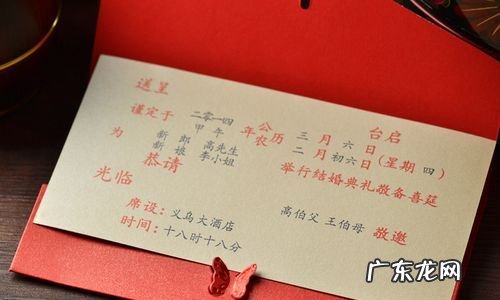 送呈 台启
谨定于 二零一四 年 公历 三月六日
甲午 农历 二月初六日(星期四)
为 新郎 高先生 举行结婚典礼敬备喜筵
新娘 李小姐
恭请 高伯父 王伯母 敬邀
光临
席设:义乌大酒店
时间:十八时十八分
广东龙网